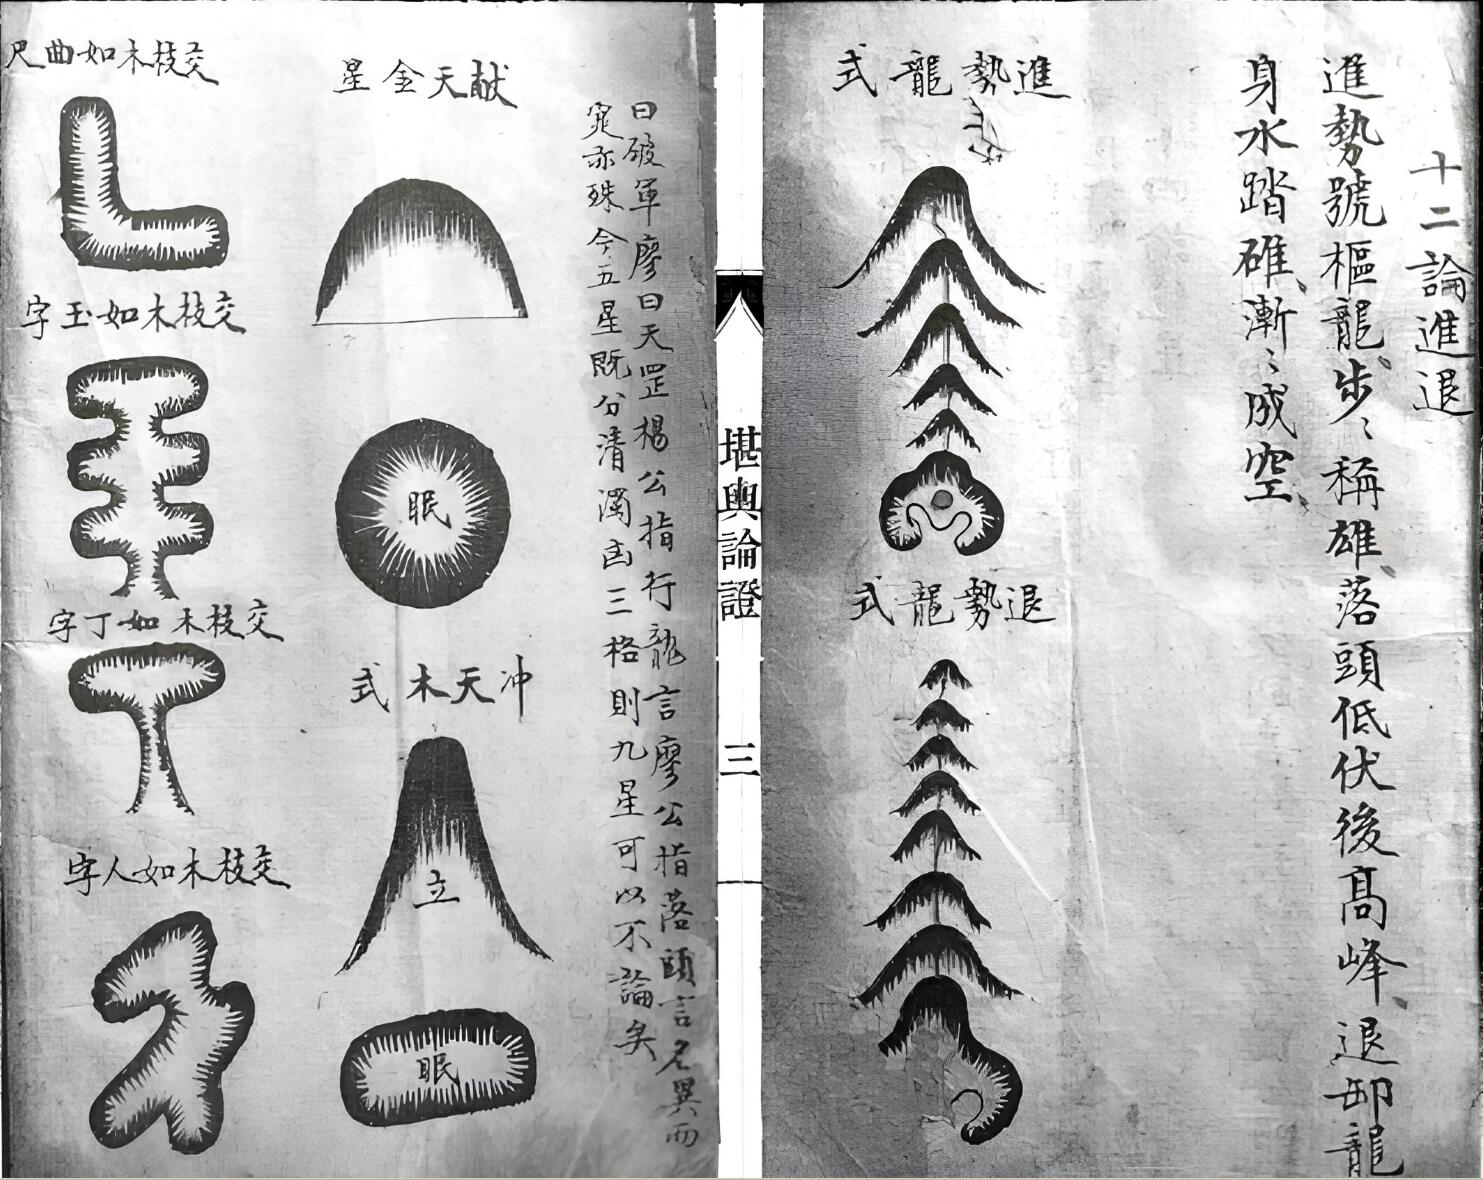 十二論進退
進勢號樞龍步〻稱雄落頭低伏後高峰退卸龍
身水踏碓漸〻成空
進勢龍式
退勢龍式
堪輿論證
三
曰破軍廖曰天罡楊公指行龍言廖公指落頭言名異而
寔亦殊今五星既分清濁凶三格則九星可以不論矣
献天金星
眠
冲天木式
立
眠
交枝木如曲尺
交枝木如玉字
交枝木如丁字
交枝木如人字